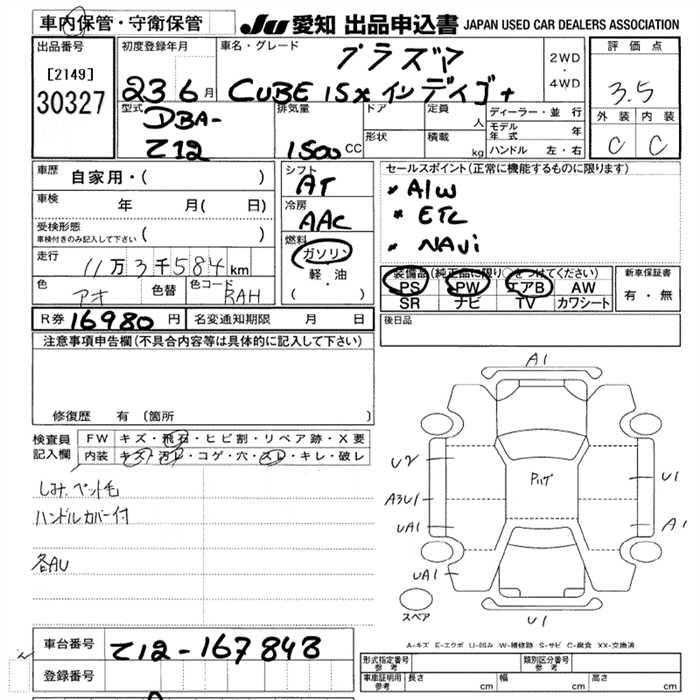 車内保管・守衛保管
JU 愛知 出品申込書 JAPAN USED CAR DEALERS ASSOCIATION
出品番号
[2149]
30327
初度登録年月
23 6 月
車名・グレード
プラズマ
CUBE 15X インディゴ+
2WD
・
4WD
評価点
3.5
外装 内装
C C
型式
DBA-
Z12
排気量
1500 CC
ドア
形状
定員
人
積載
kg
ディーラー・並行
モデル年式 年
ハンドル 左・右
車歴
自家用・( )
車検
年 月( 日)
受検形態
車検付きのみ記入して下さい ( )
走行
11万3千584km
色
アオ
色替
色コード
RAH
シフト
AT
冷房
AAC
燃料
ガソリン
軽・油
( )
セールスポイント(正常に機能するものに限ります)
* A/W
* ETC
* NAVi
装備品(純正品に限り○をつけてください)
PS PW エアB AW
SR ナビ TV カワシート
新車保証書
有・無
R券 16980 円
名変通知期限 月 日
後日品
注意事項申告欄(不具合内容等は具体的に記入して下さい)
修復歴 有 (箇所 )
検査員
記入欄
FW キズ・飛石・ヒビ割・リペア跡・X要
内装 キズ・汚レ・コゲ・穴・スレ・キレ・破レ
しみ、ペット毛
ハンドルカバー付
各AU
A1
U2
A3U1
UA1
UA1
U1
A1
U1
スペア
A-キズ E-エクボ U-凹み W-補修跡 S-サビ C-腐食 XX-交換済
車台番号
Z12-167848
登録番号
形式指定番号
参考
類別区分番号
参考
車庫証明用
参考
長さ cm
幅 cm
高さ cm